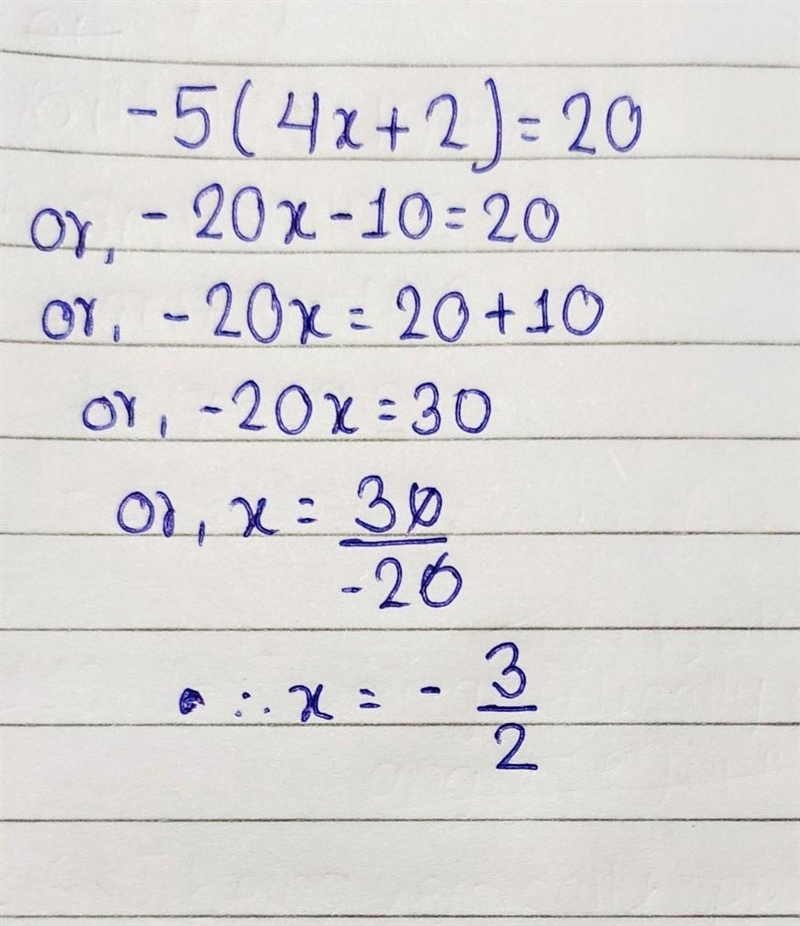 -5(4x+2)=20
or, -20x-10=20
or, -20x=20+10
or, -20x=30
or, x=30/-20
∴x=-3/2